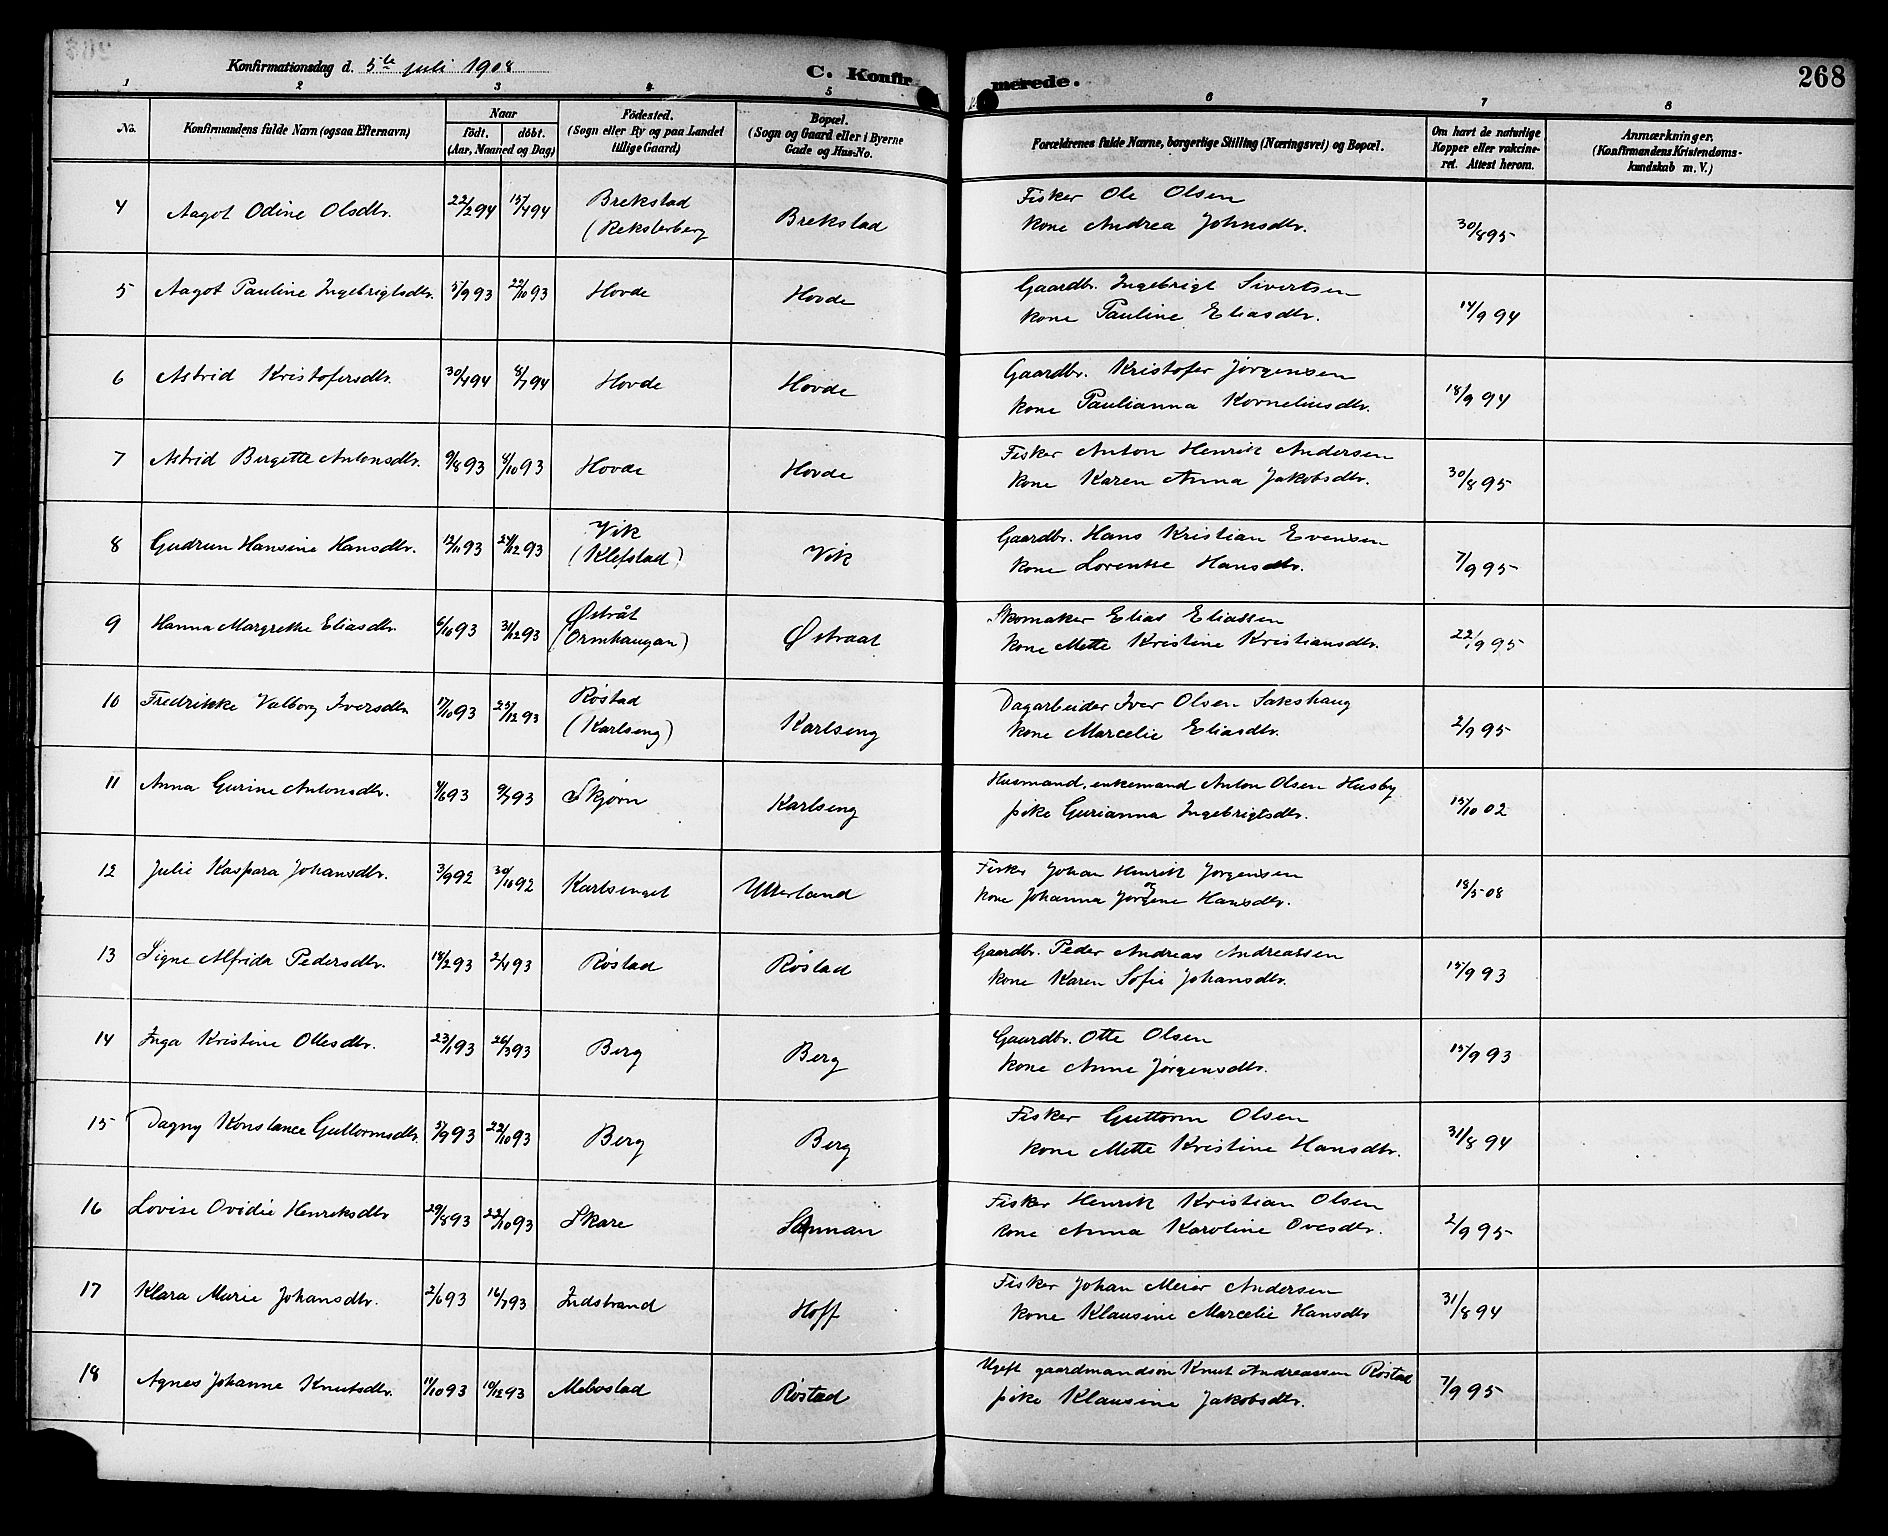 Konfirmationsdag d. 5te juli 1908
C. Konfirmerede.
268
1 2 3 4 5 6 7 8
No.
Konfirmandens fulde Navn (ogsaa Efternavn)
Naar
født. døbt.
(Aar, Maaned og Dag)
Fødested.
(Sogn eller By og paa Landet
tillige Gaard)
Bopæl.
(Sogn og Gaard eller i Byerne
Gade og Hus-No.
Forældrenes fulde Navne, borgerlige Stilling (Næringsvei) og Bopæl.
Om havt de naturlige
Kopper eller vakcine-
ret. Attest herom.
Anmærkninger.
(Konfirmandens Kristendoms-
kundskab m. V.)
4 Aagot Odine Olsdtr. 22/2 94 15/4 94 Brekstad (Reksterberg Brekstad Fisker Ole Olsen
kone Andrea Johnsdtr. 30/8 95
5 Aagot Pauline Ingebrigtsdtr. 5/9 93 22/10 93 Hovde Hovde Gaardbr. Ingebrigt Sivertsen
kone Pauline Eliasdtr. 14/9 94
6 Astrid Kristofersdtr. 30/4 94 8/7 94 Hovde Hovde Gaardbr. Kristofer Jørgensen
kone Paulianna Korneliusdtr. 18/9 94
7 Astrid Bergette Antonsdtr. 9/8 93 8/10 93 Hovde Hovde Fisker Anton Henrik Andersen
kone Karen Anna Jakobsdtr. 30/8 95
8 Gudrun Hansine Hansdtr. 12/11 93 24/12 93 Vik (Klefstad) Vik Gaardbr. Hans Kristian Evensen
kone Lorentse Hansdtr. 7/9 95
9 Hanna Margrethe Eliasdtr. 6/10 93 31/12 93 Østråt (Ormhaugan) Østraat Skomaker Elias Eliassen
kone Mette Kristine Kristiansdtr. 22/9 95
10 Fredrikke Valborg Iversdtr 17/10 93 25/12 93 Røstad (Karlseng) Karlseng Dagarbeider Iver Olsen Sakshaug
kone Marcelie Eliasdtr. 2/9 95
11 Anna Gurine Antonsdtr. 4/6 93 9/7 93 Skjørn Karlseng Husmand, enkemand Anton Olsen Husby
pike Gurianna Ingebrigtsdtr. 15/10 02
12 Julie Kaspara Johansdtr. 3/9 92 30/10 92 Karlsenget Utterland Fisker Johan Henrik Jørgensen
kone Johanna Jørgine Hansdtr. 18/5 08
13 Signe Alfrida Pedersdtr. 18/2 93 2/4 93 Røstad Røstad Gaardbr. Peder Andreas Andreassen
kone Karen Sofie Johansdtr. 15/9 93
14 Inga Kristine Ottesdtr. 23/1 93 26/3 93 Berg Berg Gaardbr. Otte Olsen
kone Anne Jørgensdtr. 15/9 93
15 Dagny Konstance Guttormsdtr. 3/9 93 22/10 93 Berg Berg Fisker Guttorm Olsen
kone Mette Kristine Hansdtr. 31/8 94
16 Lovise Ovidie Henriksdtr 29/8 93 22/10 93 Skare Fisker Henrik Kristian Olsen
kone Anna Karoline Ovesdtr. 2/9 95
17 Klara Marie Johansdtr. 2/6 93 16/7 93 Indstrand Hoff Fisker Johan Meier Andersen
kone Klausine Marcelie Hansdtr 31/8 94
18 Agnes Johanne Knutsdtr. 11/10 93 10/12 93 Mebostad Røstad Ugift gaardmandsøn Knut Andreassen Røstad
pike Klausine Jakobsdtr. 7/9 95